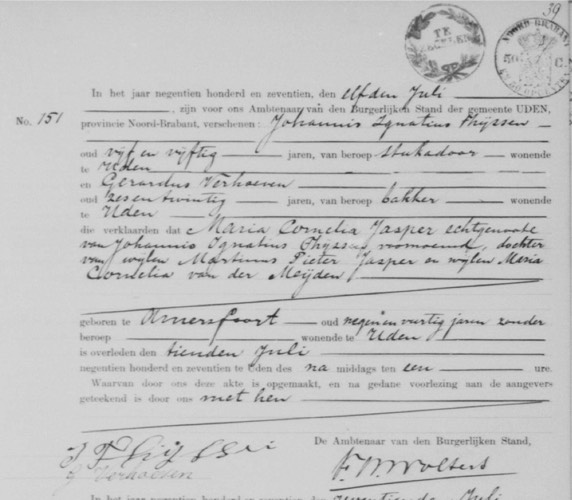 39
TE
NOORD-BRABANT
50 C.
In het jaar negentien honderd en zeventien, den elfden Juli
, zijn voor ons Ambtenaar van den Burgerlijken Stand der gemeente UDEN,
No. 151 provincie Noord-Brabant, verschenen: Johannis Ignatius Thijssen
oud vijf en vijftig jaren, van beroep stukadoor wonende
te Uden
en Gerardus Verhoeven
oud zes en twintig jaren, van beroep bakker wonende
te Uden
die verklaarden dat Maria Cornelia Jasper echtgenoote
van Johannis Ignatius Thyssen voornoemd, dochter
van wijlen Martinus Pieter Jasper en wijlen Maria
Cornelia van der Meijden
geboren te Amersfoort oud negen en veertig jaren zonder
beroep wonende te Uden
is overleden den tienden Juli
negentien honderd en zeventien te Uden des na middags ten een ure.
Waarvan door ons deze akte is opgemaakt, en na gedane voorlezing aan de aangevers
geteekend is door ons met hen
De Ambtenaar van den Burgerlijken Stand,
J Thijssen
G Verhoeven
Wolters
In het jaar negentien honderd en zeventien, den Juli